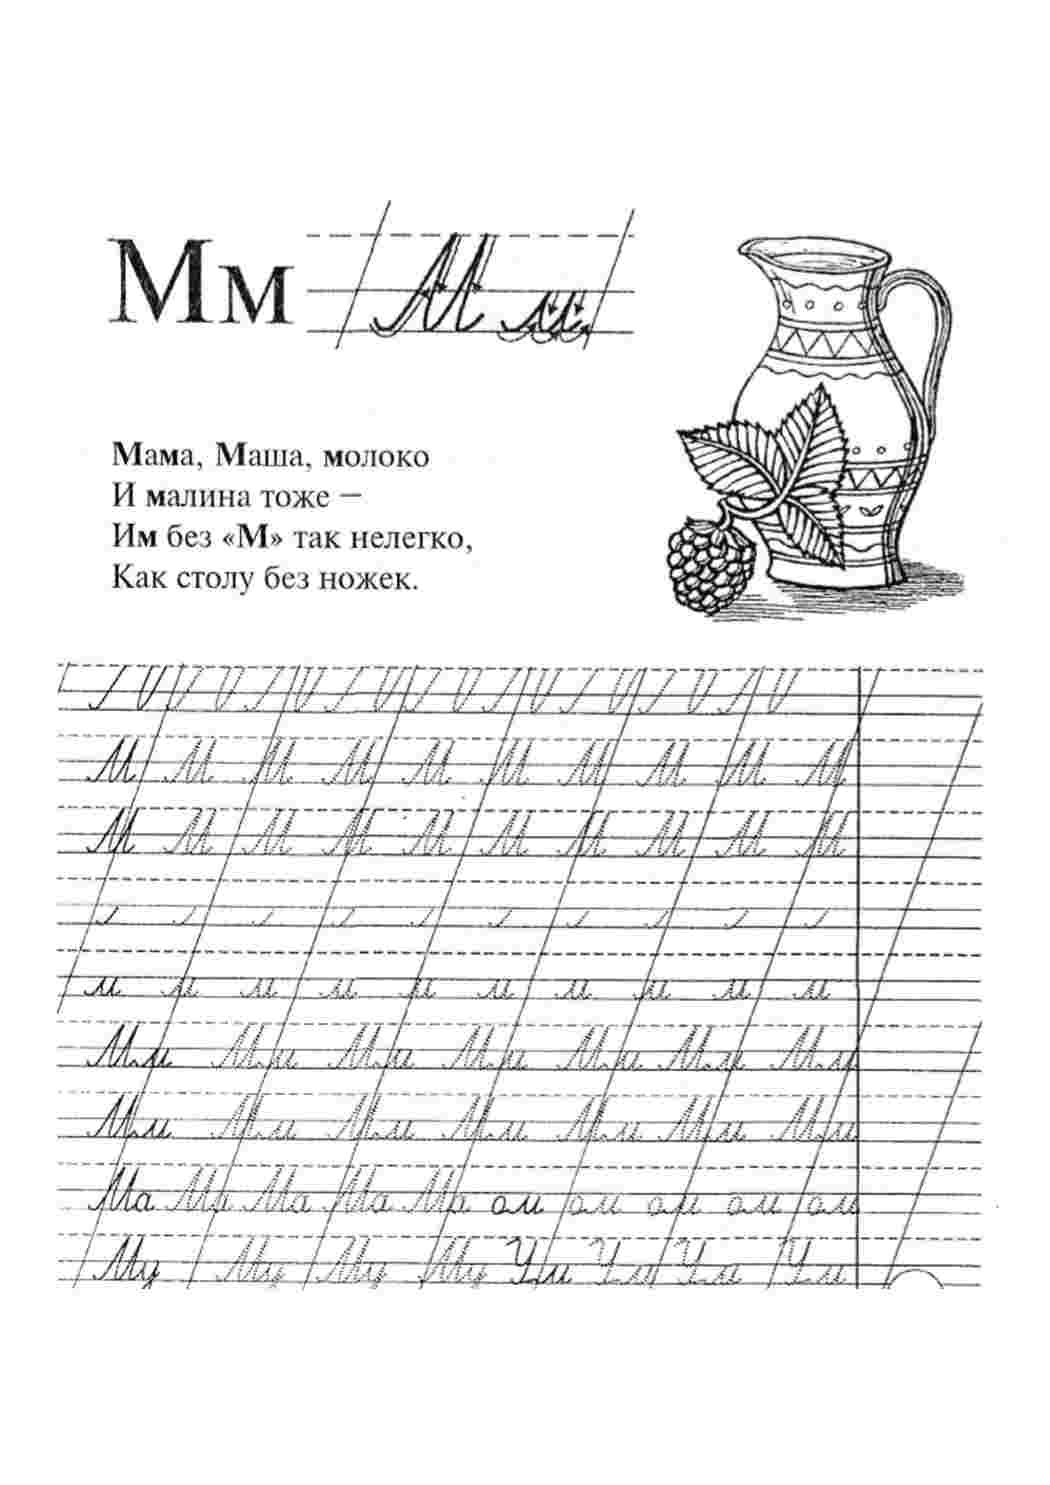 Мм М м
Мама, Маша, молоко
И малина тоже —
Им без «М» так нелегко,
Как столу без ножек.
М М М М М М М М М М
М М М М М М М М М М
м м м м м м м м м м
Мм Мм Мм Мм Мм Мм Мм
Мм Мм Мм Мм Мм Мм Мм
Ма Ма Ма Ма Ма ом ом ом ом ом
Му Му Му Му Ум Ум Ум Ум